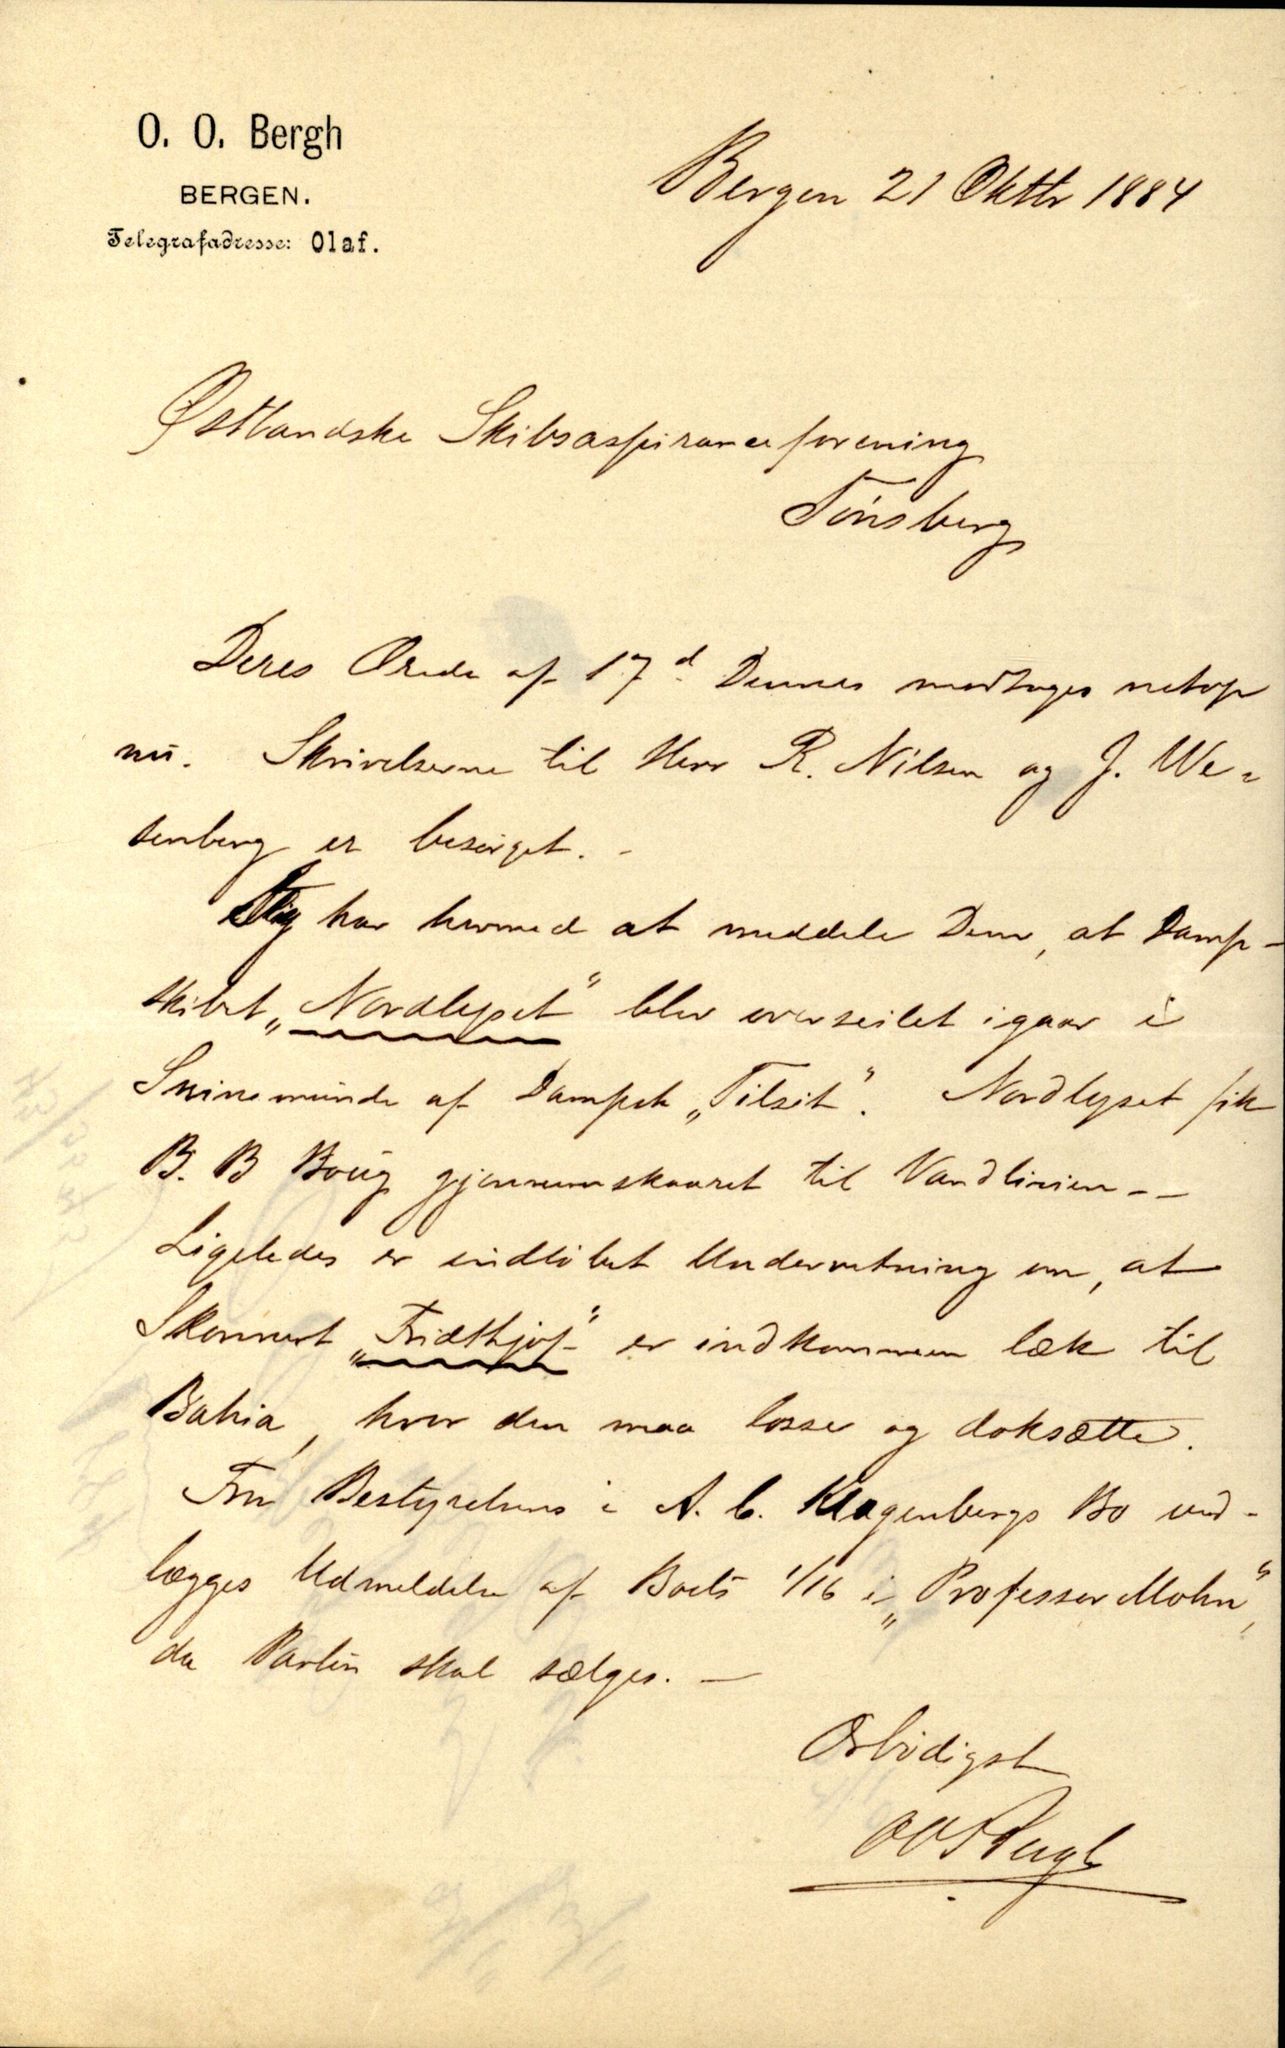 O. O. Bergh
BERGEN.
Telegrafadresse: Olaf.
Bergen 21 Oktbr 1884
Østlandske Skibsassuranceforening
Tönsberg
Deres Ærede af 17d Dennes modtages netop
nu. Skrivelserne til Herr R. Nilsen og J. We-
senberg er besörget. -
Jeg har hermed at meddele Dem, at Damp-
skibet „Nordlyset" blev overseilet igaar i
Swinemünde af Dampsk „Tilsit". Nordlyset fik
B. B Boug gjennemskaaret til Vandlinien--
Ligeledes er indlöbet Underretning om, at
Skonnert „Fridthjof" er indkommen læk til
Bahia, hvor den maa losse og doksætte.
Fra Bestyrelsens i A. C. Klagenbergs Bo ved-
lægges Udmeldelse af Boets 1/16 i „Professor Mohn",
da Parten skal sælges. -
Ærbödigst
OOBergh